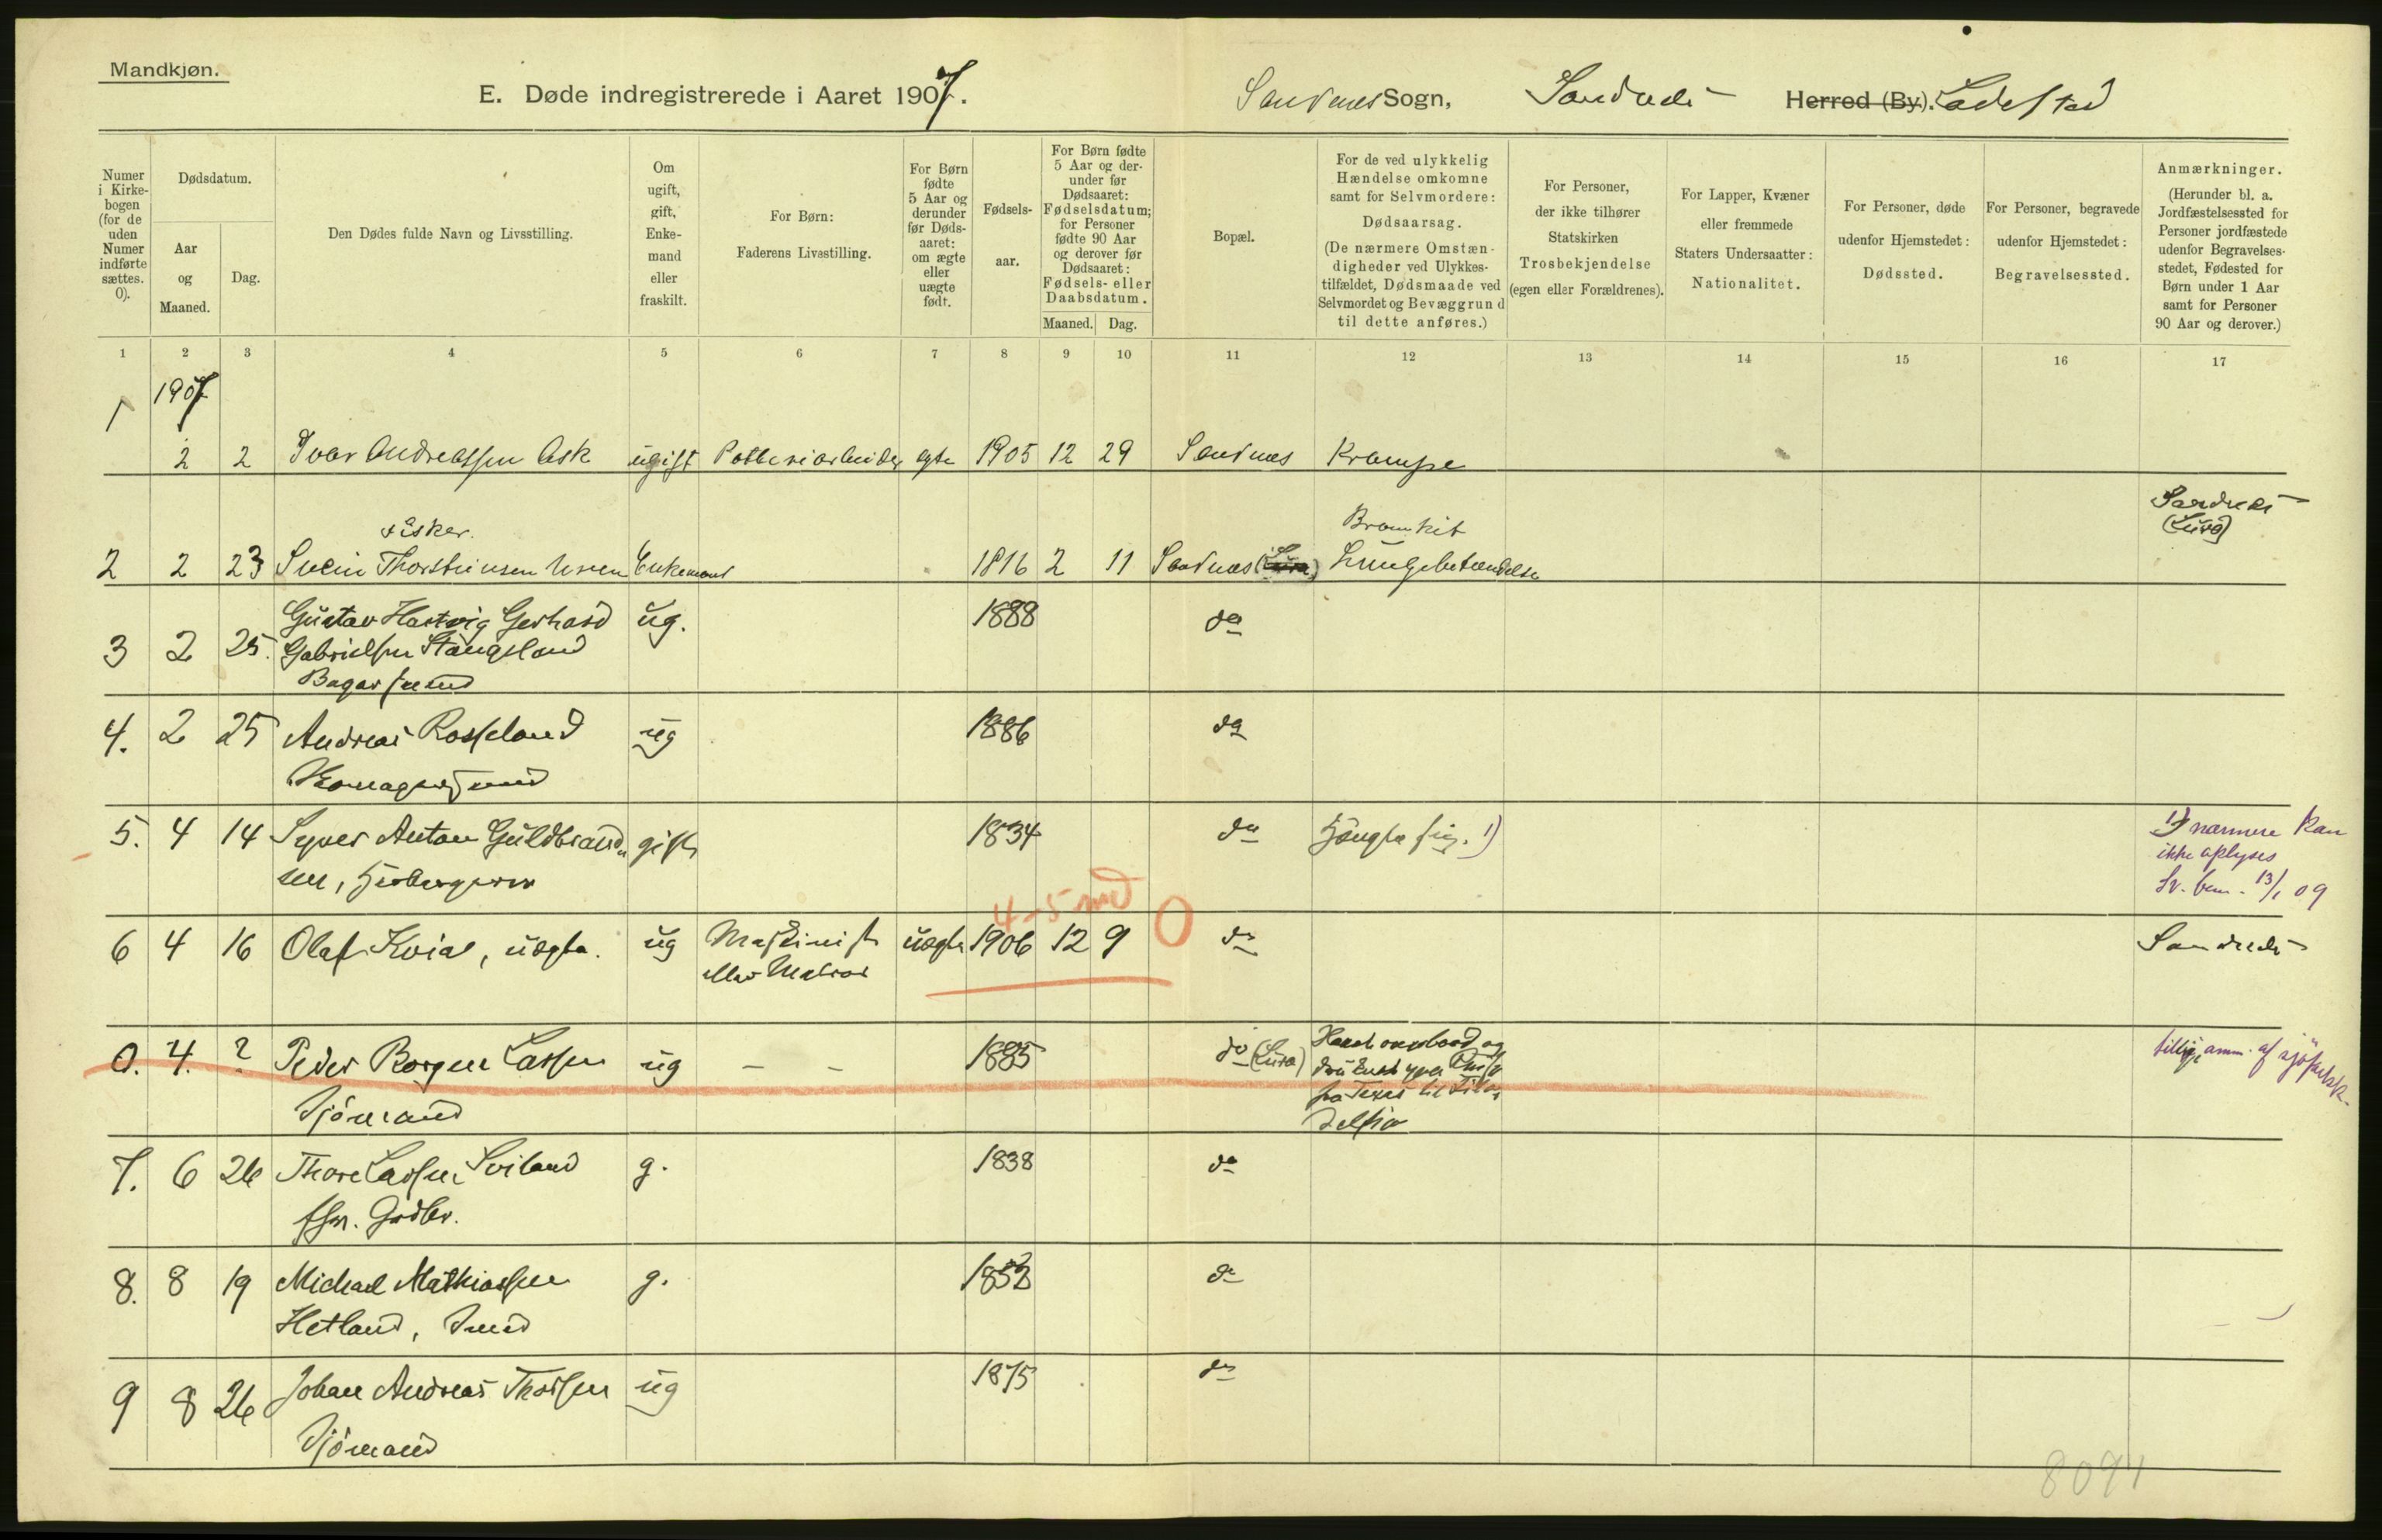 Mandkjøn.
E. Døde indregistrerede i Aaret 1907. Sandnes Sogn, Sandnes Herred (By). Ladested
Numer i Kirkebogen (for de uden Numer indførte sættes. 0).
Dødsdatum.
Aar og Maaned.
Dag.
Den Dødes fulde Navn og Livsstilling.
Om ugift, gift, Enkemand eller fraskilt.
For Børn: Faderens Livsstilling.
For Børn fødte 5 Aar og derunder før Dødsaaret: om ægte eller uægte født.
Fødselsaar.
For Børn fødte 5 Aar og derunder før Dødsaaret: Fødselsdatum; for Personer fødte 90 Aar og derover før Dødsaaret: Fødsels- eller Daabsdatum.
Maaned. Dag.
Bopæl.
For de ved ulykkelig Hændelse omkomne samt for Selvmordere: Dødsaarsag. (De nærmere Omstændigheder ved Ulykkestilfældet, Dødsmaade ved Selvmordet og Bevæggrund til dette anføres.)
For Personer, der ikke tilhører Statskirken Trosbekjendelse (egen eller Forældrenes).
For Lapper, Kvæner eller fremmede Staters Undersaatter: Nationalitet.
For Personer, døde udenfor Hjemstedet: Dødssted.
For Personer, begravede udenfor Hjemstedet: Begravelsessted.
Anmærkninger. (Herunder bl. a. Jordfæstelsessted for Personer jordfæstede udenfor Begravelsesstedet, Fødested for Børn under 1 Aar samt for Personer 90 Aar og derover.)
1 2 3 4 5 6 7 8 9 10 11 12 13 14 15 16 17
1 1907
2 2 Ivar Andreassen Ask ugift Potteriarbeider egte 1905 12 29 Sandnes Krampe
fisker. Bronkit Sandnes (Lura)
2 2 23 Svein Thorsteinsen Enkemand 1816 2 11 Sandnes (Lura) Lungebetændelse
Gustav Hartvig Gerhard ug. 1888 do
3 2 25. Gabrielsen Stangeland
Bagersvend
4. 2 25 Andreas Rosseland ug 1886 do
5. 4 14 Syver Anton Guldbrand gift 1834 do Hängte sig. 1) 1) nærmere kan
sen, ikke oplyses
13/1 09
4-5 md
6 4 16 Olaf Kvial, uægte. ug Maskinist uægte 1906 12 9 0 do Sandnes
eller Matros
0. 4. ? Peder Borgen Lassen ug - - 1885 do (Lura)
Sjömand
fra Texas til
tillige anm. af
7. 6 26 Thore Lassen Sviland g. 1838 do
fhv. Grdbr.
8. 8 19 Michael Mathiassen g. do
Hetland, Smed
9 8 26 Johan Andreas Thorsen ug 1875 do
Sjömand
8094